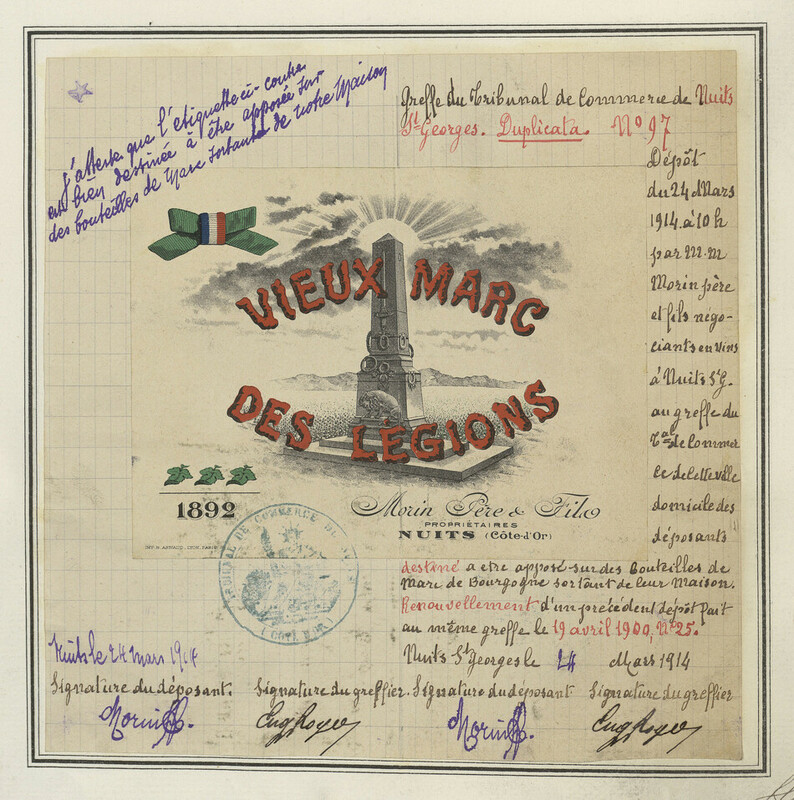 J'atteste que l'etiquette ci-contre
est bien destinée à être apposée sur
des bouteilles de Marc sortant de notre Maison
Greffe du Tribunal de Commerce de Nuits
St Georges. Duplicata. No 97
Dépôt
du 24 Mars
1914 à 10 h
par M.M
Morin père
et fils négo-
ciants en vins
à Nuits St G.
au greffe du
Tal de Commer
ce de cette ville
domicile des
déposants
VIEUX MARC
DES LÉGIONS
1892
Morin Père & Fils
PROPRIÉTAIRES
NUITS (Côte-d'Or)
IMP. H. ARNAUD. LYON, PARIS
TRIBUNAL DE COMMERCE DE NUITS
(COTE D'OR)
destiné a etre apposé sur des bouteilles de
marc de Bourgogne sortant de leur Maison.
Renouvellement d'un précédent dépôt fait
au même greffe le 19 avril 1900, No 25.
Nuits le 24 mars 1914
Nuits St Georges le 24 Mars 1914
Signature du déposant. Signature du greffier. Signature du déposant Signature du greffier
Morin Eug Royer Morin Eug Royer